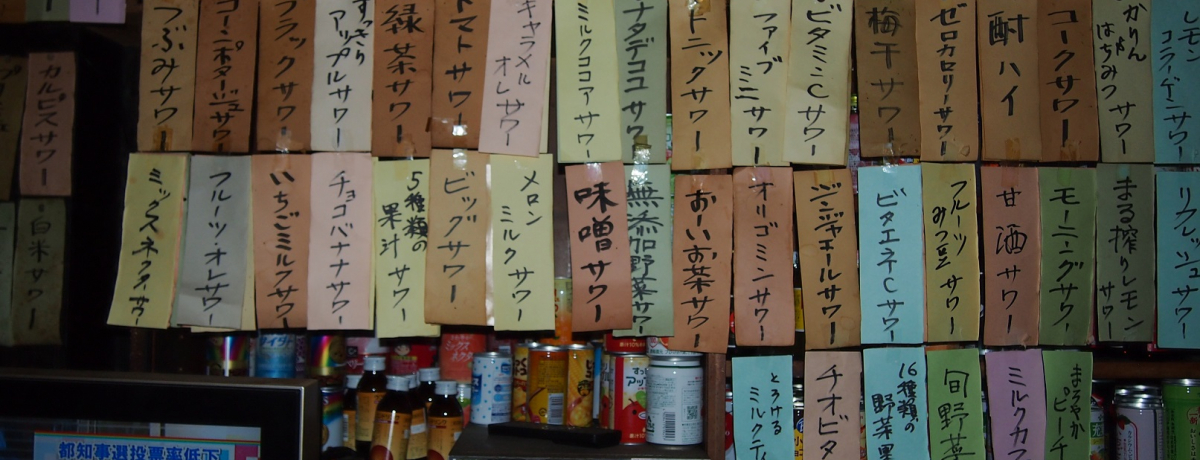 つぶみサワー
コーンポタージュサワー
ブラックサワー
すっきり
アップルサワー
緑茶サワー
トマトサワー
キャラメル
オレサワー
ミルクココアサワー
ナタデココサワー
トニックサワー
ファイブ
ミニサワー
ビタミンCサワー
梅干サワー
ゼロカロリーサワー
酎ハイ
コークサワー
かりん
はちみつサワー
レモン
コラーゲンサワー
カルピスサワー
白米サワー
ミックスネクターサワー
フルーツ・オレサワー
いちごミルクサワー
チョコバナナサワー
5種類の
果汁サワー
ビッグサワー
メロン
ミルクサワー
味噌サワー
無添加野菜サワー
おーいお茶サワー
オリゴミンサワー
ジンジャエールサワー
ビタエネCサワー
フルーツ
みつ豆サワー
甘酒サワー
モーニングサワー
まる搾りレモン
サワー
リフレッシュサワー
とろける
ミルクティ
チオビタ
16種類の
野菜果
旬野菜
ミルクカフ
まろやか
ピーチ
都知事選投票率低下